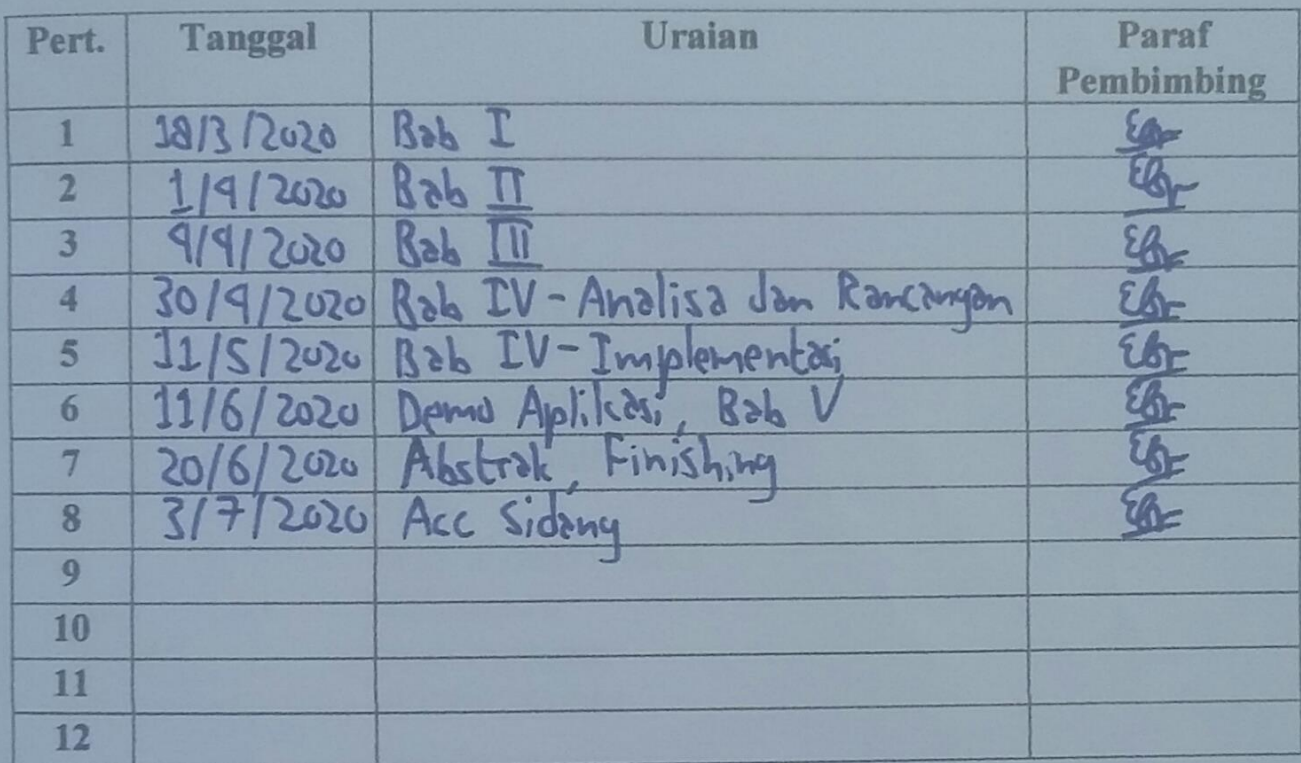 Pert. Tanggal Uraian Paraf Pembimbing
1 18/3/2020 Bab I
2 1/4/2020 Bab II
3 4/4/2020 Bab III
4 30/4/2020 Bab IV - Analisa dan Rancangan
5 11/5/2020 Bab IV - Implementasi
6 11/6/2020 Demo Aplikasi, Bab V
7 20/6/2020 Abstrak, Finishing
8 3/7/2020 Acc Sidang
9
10
11
12